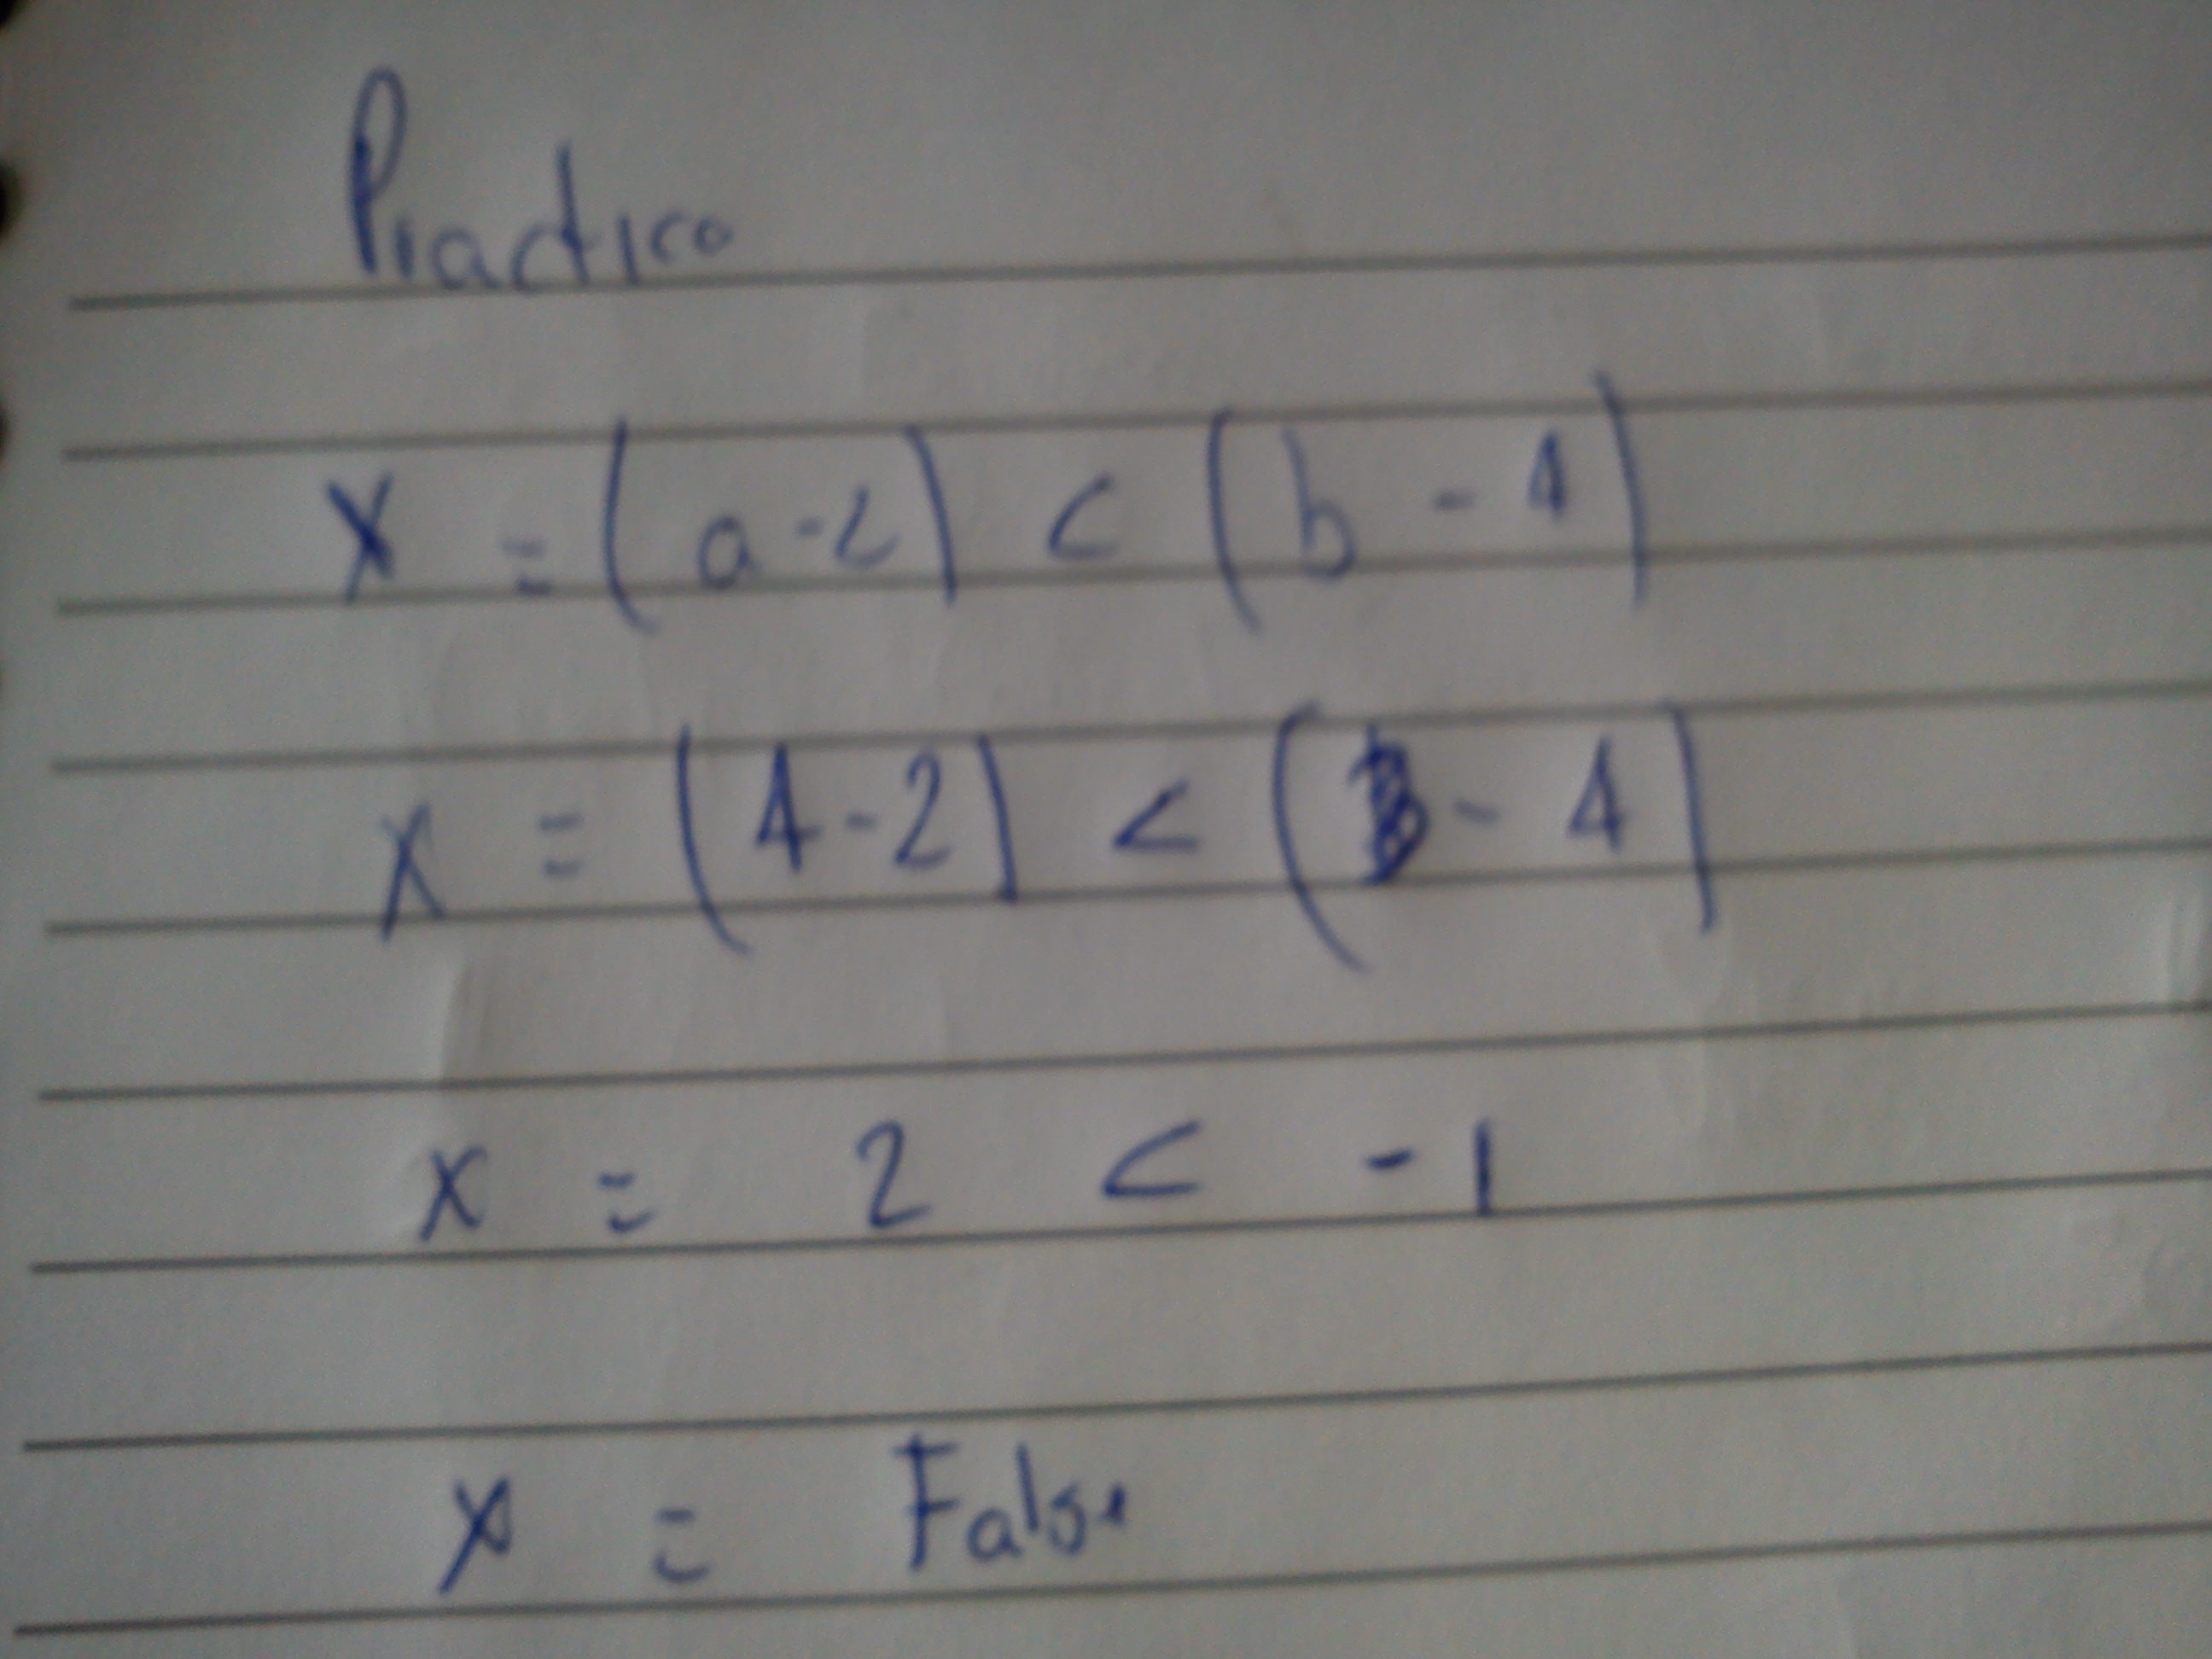 Practico
x = (a - 2) < (b - 4)
x = (4 - 2) < (3 - 4)
x = 2 < - 1
x = False